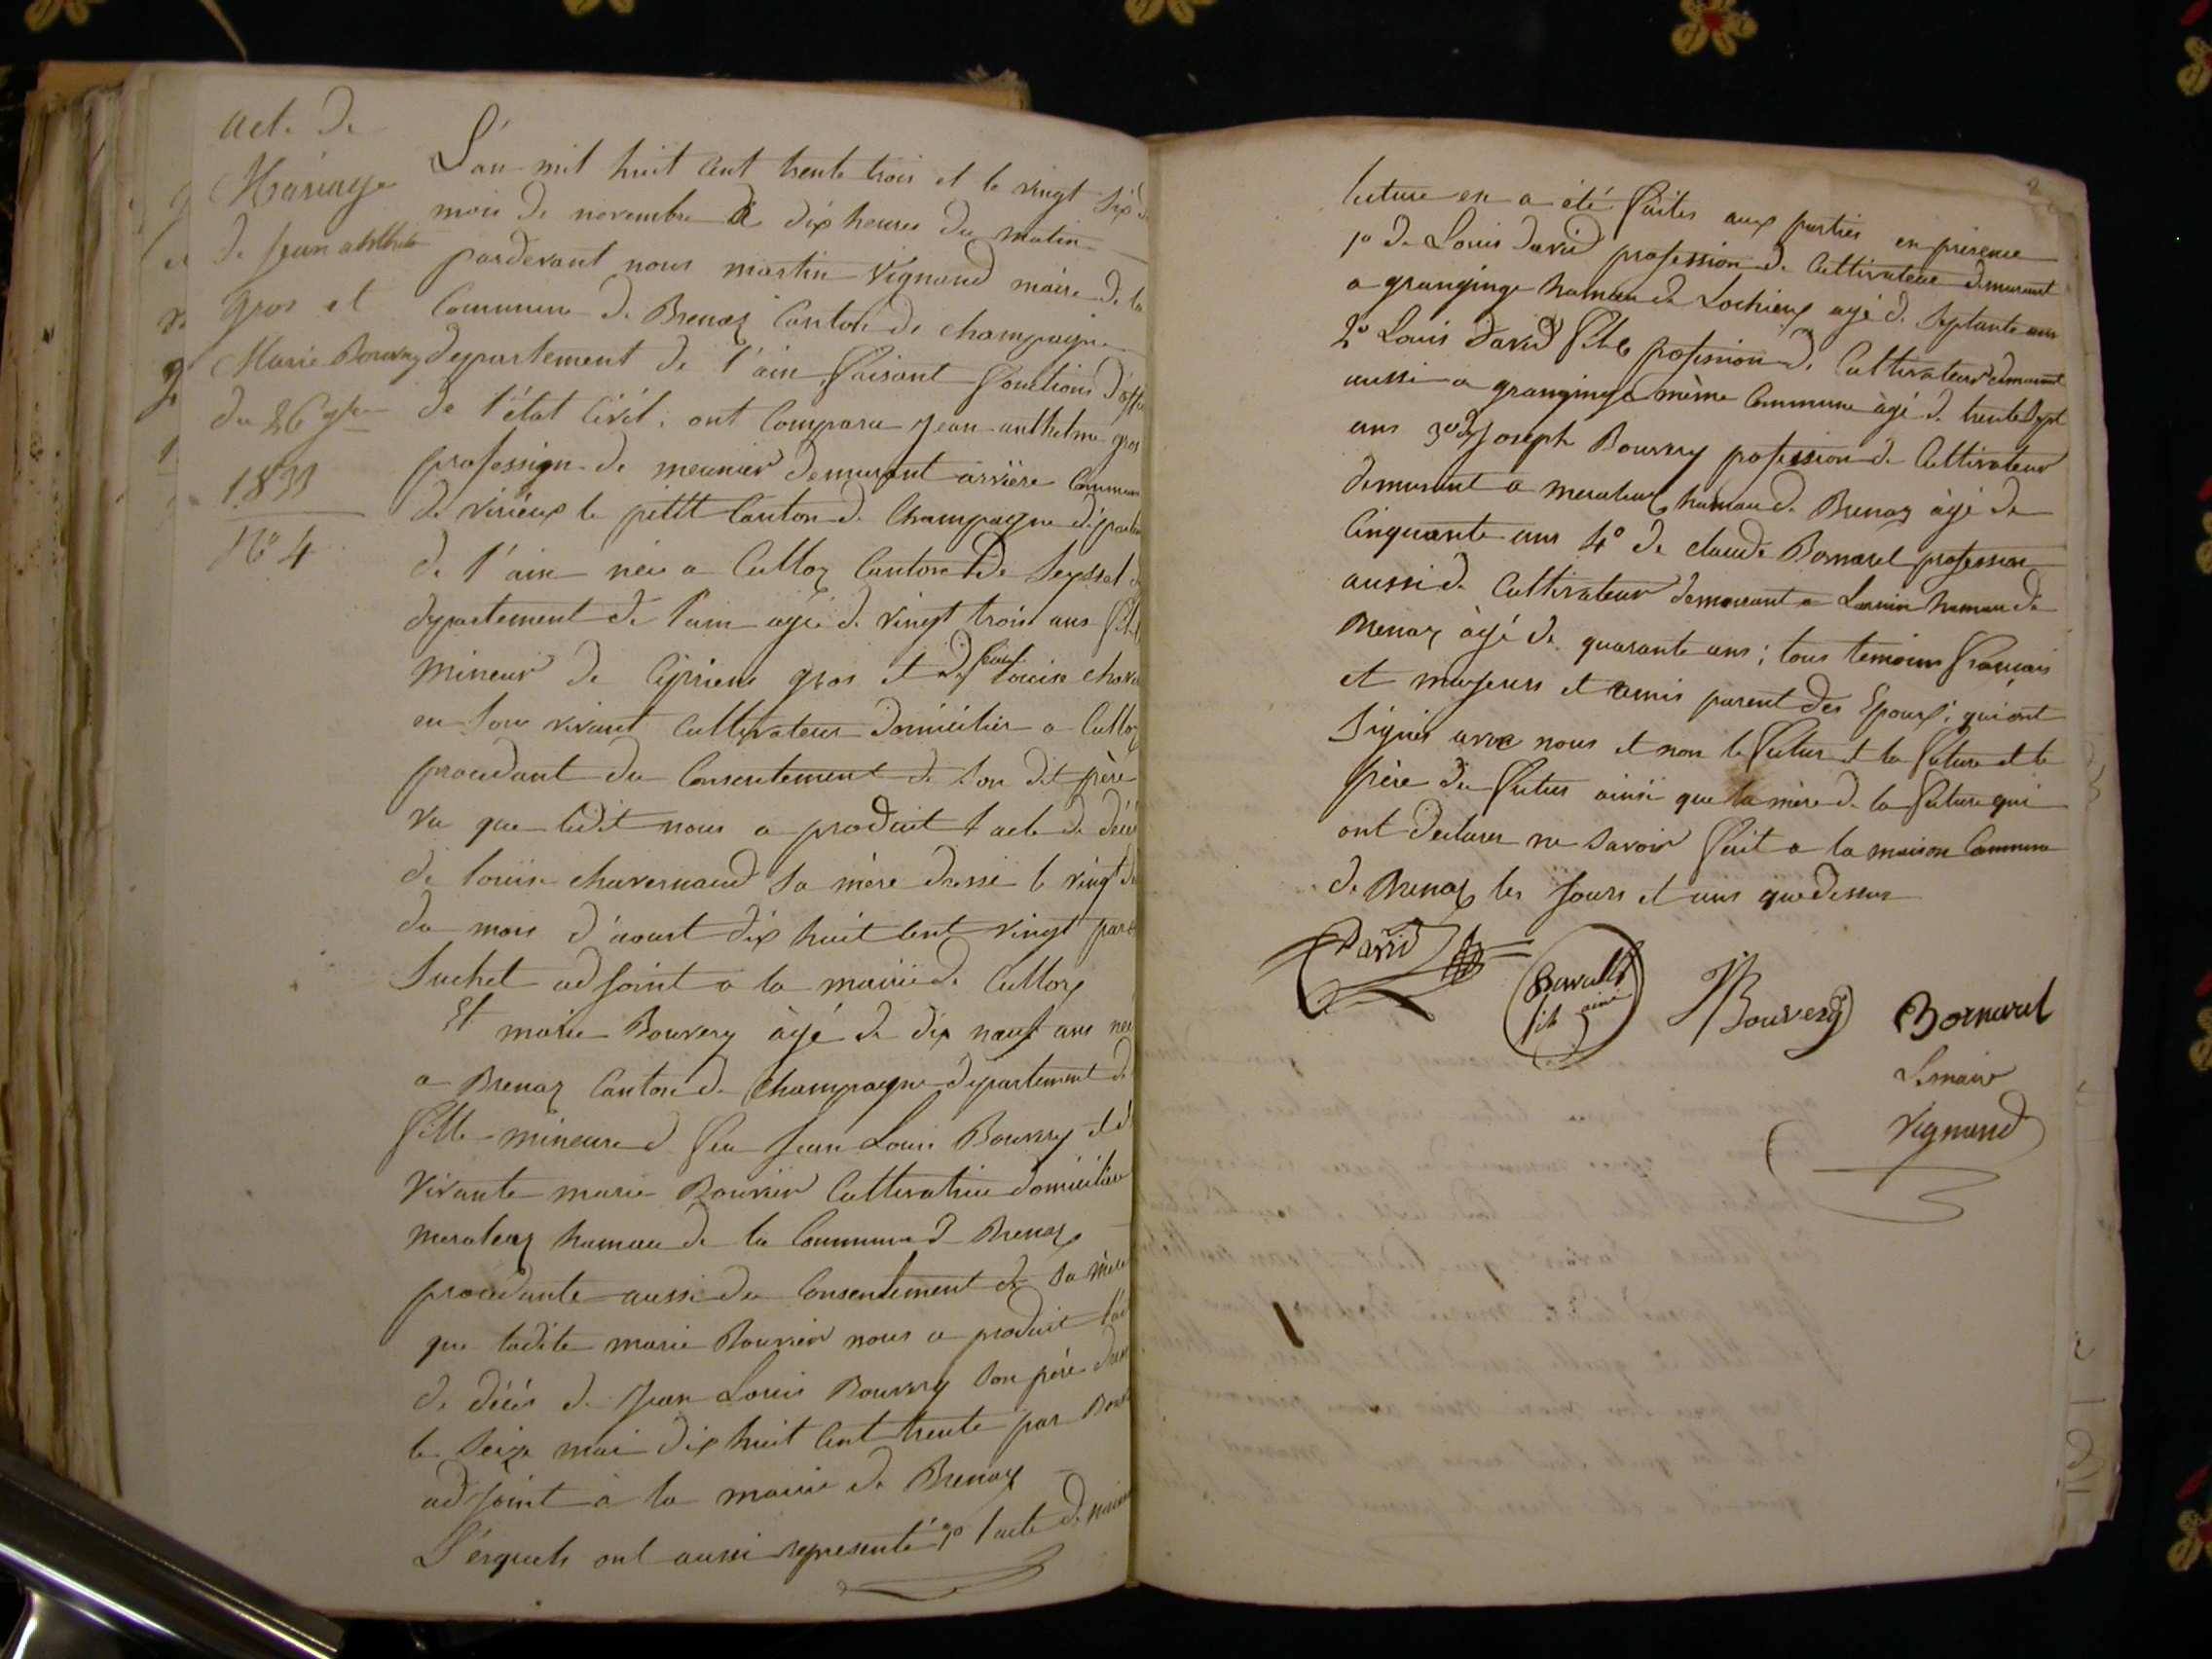 acte de
Mariage
de Jean anthelme
gros et
Marie Bouvery
du 26 9bre
1833
No 4
L'an mil huit cent trente trois et le vingt six du
mois de novembre à dix heures du matin
pardevant nous martin Vignand maire de la
Commune de Brenaz Canton de champagne
departement de l'ain faisant fonctions d'offi
de l'état Civil. ont Comparu Jean anthelme gros
profession de meunier demurant arviere Commune
de virieux le petit Canton de Champagne départem
de l'ain née a Culloz Canton de Seyssel
departement de l'ain agé de vingt trois ans fils
mineur de Ciprien gros et de feue Louise chave
en son vivant Cultivateur domicilier a Culloz
procedant du Consentement de son dit père
vu que ledit nous a produit l'acte de décé
de louise chavernaud sa mère dressé le vingt
du mois d'aoust dix huit cent vingt par
Suchet adjoint a la mairie de Culloz
Et marie Bouvery àgé de dix neuf ans née
a Brenaz Canton de Champagne departement de
fille mineure d feu Jean Louis Bouvery et d
vivante marie Bouvier Cultivatrice domicilié
meraleaz hameau de la Commune d Brenaz
procédante aussi du Consentement de sa mère
que ladite marie Bouvier nous a produit l'ac
de décés de Jean Louis Bouvery son père dres
le seize mai dix huit cent trente par Bou
adjoint à la mairie de Brenaz
Lesquels ont aussi representé 1o l'acte de naissan
lecture en a été faites aux parties en présence
1o de Louis david profession de Cultivateur demurant
a granginge hameau de Lochieux agé de septante ans
2o Louis David fils profession de Cultivateur demurant
aussi a granginge même Commune àgé de trente sept
ans 3o de Joseph Bouvery profession de Cultivateur
demurant a meraleaz hameau de Brenaz àgé de
Cinquante ans 4o de claude Bornarel profession
aussi de Cultivateur demeurant a hameau de
Brenaz àgé de quarante ans; tous temoins francais
et majeurs et amis parent des Epoux; qui ont
signés avec nous et non le futur et la future et le
père du futur ainsi que la mère de la future qui
ont declarer ne savoir fait a la maison Commune
de Brenaz les Jours et ans que dessus
David
fils ainé
Bouvery
Bornarel
Le maire
Vignand